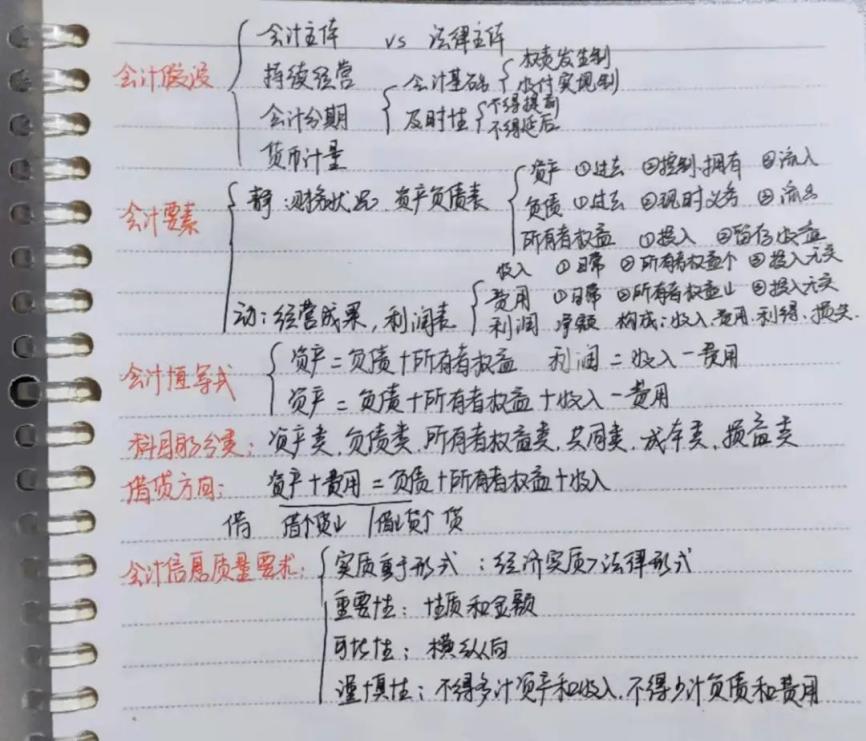 会计主体 vs 法律主体
会计假设
持续经营 会计基础 权责发生制
收付实现制
会计分期 及时性 不得提前
不得延后
货币计量
资产 ①过去 ②控制.拥有 ③流入
会计要素 静:财务状况.资产负债表 负债 ①过去 ②现时义务 ③流出
所有者权益 ①投入 ②留存收益
收入 ①日常 ②所有者权益↑ ③投入无关
费用 ①日常 ②所有者权益↓ ③投入无关
动:经营成果,利润表 利润 净额 构成:收入.费用.利得.损失.
会计恒等式 资产=负债+所有者权益 利润=收入-费用
资产=负债+所有者权益+收入-费用
科目的分类: 资产类.负债类.所有者权益类.共同类.成本类.损益类
借贷方向: 资产+费用=负债+所有者权益+收入
借 借↑贷↓ 借↓贷↑ 贷
会计信息质量要求: 实质重于形式:经济实质>法律形式
重要性:性质和金额
可比性:横纵向
谨慎性:不得多计资产和收入.不得少计负债和费用